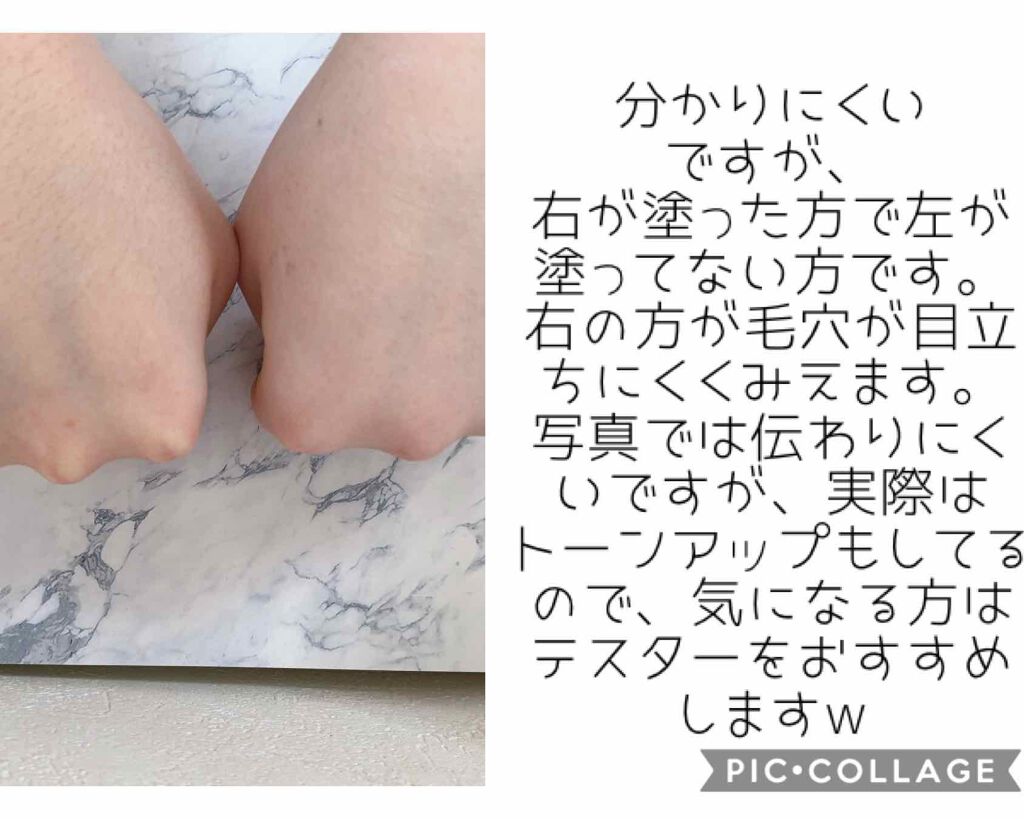 分かりにくい
ですが、
右が塗った方で左が
塗ってない方です。
右の方が毛穴が目立
ちにくくみえます。
写真では伝わりにく
いですが、実際は
トーンアップもしてる
ので、気になる方は
テスターをおすすめ
しますw
PIC•COLLAGE